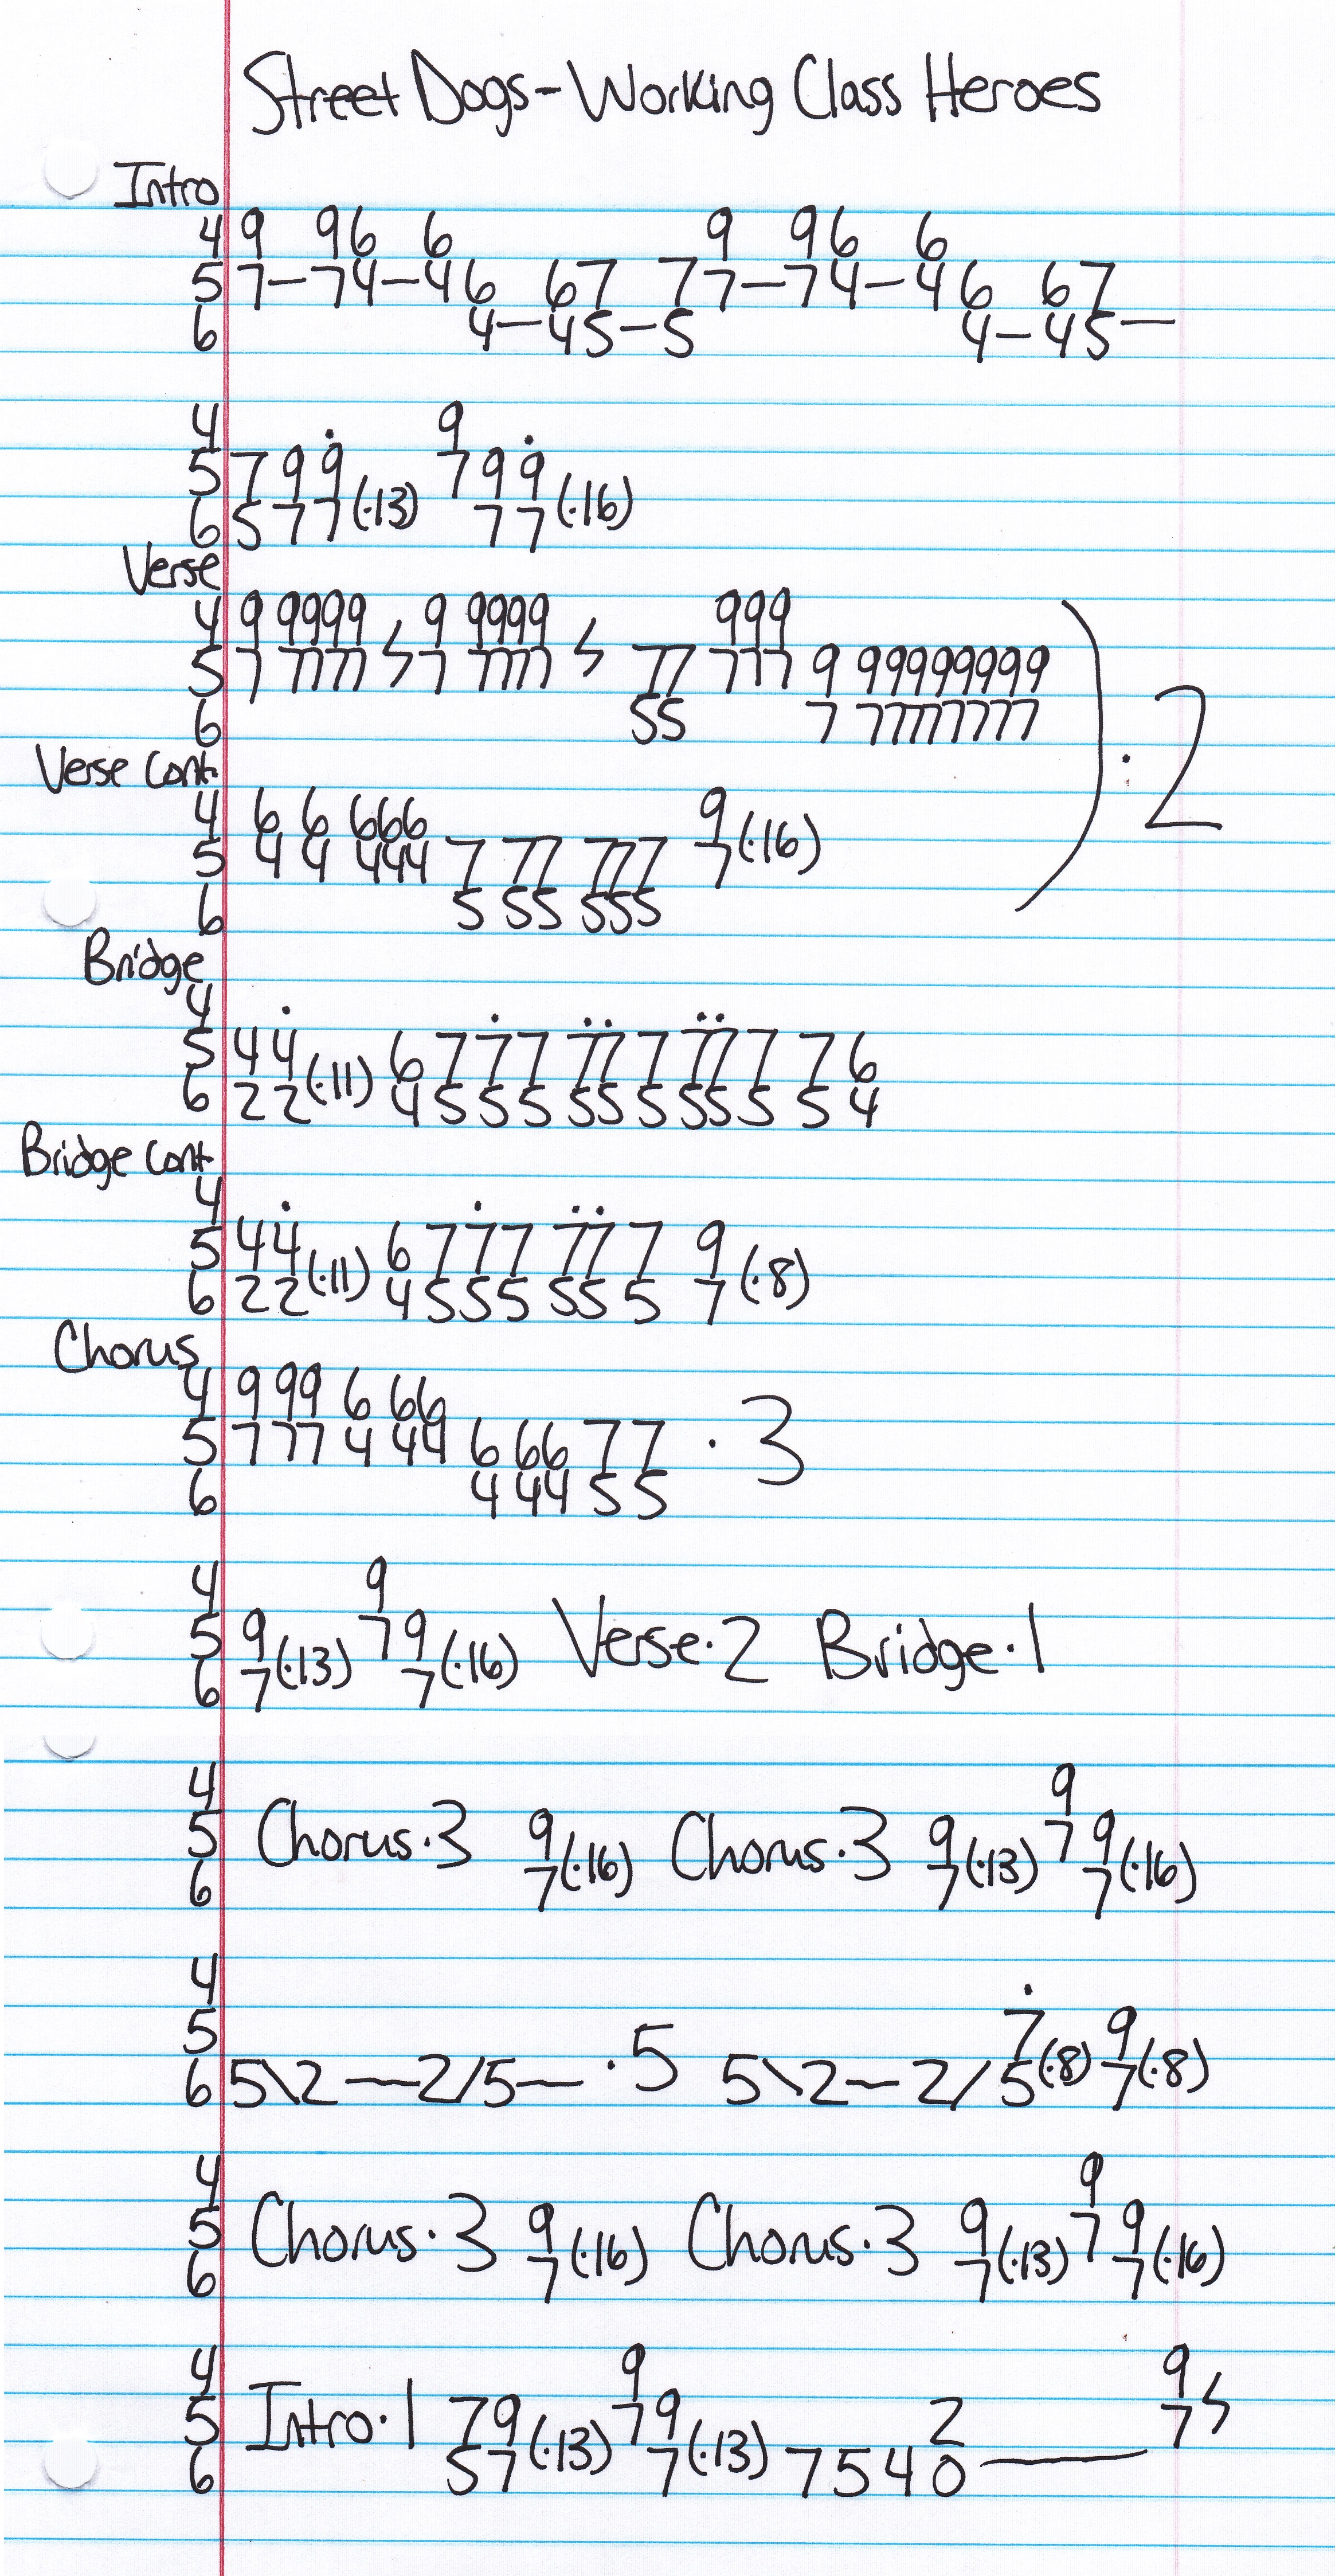 Street Dogs - Working Class Heroes
Intro
4 9 96 6 9 96 6
5 7—74—46 67 77—74—46 67
6 4—45—5 4—45—
4 9
5 799 799
6 577(·13) 77(·16)
Verse
4 9 9999 9 9999 999
5 7 7777 ϟ 7 7777 ϟ 77 777 9 99999999
6 55 7 77777777
) · 2
Verse Cont.
4 6 6 666 9
5 4 4 444 7 77 777 7(·16)
6 5 55 555
Bridge
4
5 44 6777 777 777 76
6 22(·11) 4555 555 555 54
Bridge Cont.
4
5 44 6777 77 7 9
6 22(·11) 4555 55 5 7(·8)
Chorus
4 9 99 6 66
5 7 77 4 44 6 66 77 · 3
6 4 44 55
4 9
5 9 79 Verse·2 Bridge·1
6 7(·13) 7(·16)
4 9
5 Chorus·3 9 Chorus·3 9 79
6 7(·16) 7(·13) 7(·16)
4
5 ·5 7 9
6 5\2—2/5— 5\2—2/5(·8) 7(·8)
4 9
5 Chorus·3 9 Chorus·3 9 79
6 7(·16) 7(·13) 7(·16)
4 9 9
5 Intro·1 79 79 2 7 ϟ
6 57(·13) 7(·13) 7540—